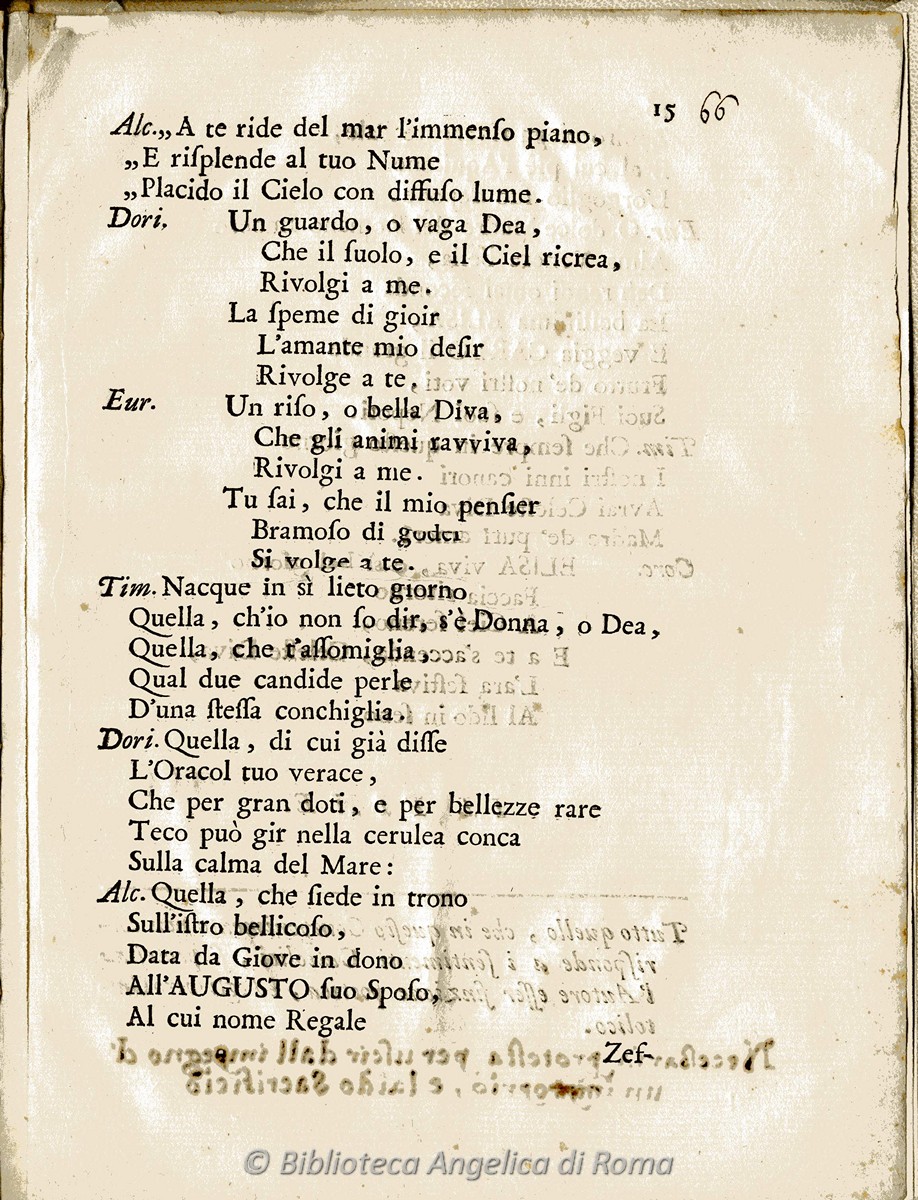 15 66
Alc.„A te ride del mar l'immenſo piano,
„E riſplende al tuo Nume
„Placido il Cielo con diffuſo lume.
Dori. Un guardo, o vaga Dea,
Che il ſuolo, e il Ciel ricrea,
Rivolgi a me.
La ſpeme di gioir
L'amante mio deſir
Rivolge a te.
Eur. Un riſo, o bella Diva,
Che gli animi ravviva,
Rivolgi a me.
Tu ſai, che il mio penſier
Bramoſo di goder
Si volge a te.
Tim. Nacque in sì lieto giorno
Quella, ch'io non ſo dir, s'è Donna, o Dea,
Quella, che t'aſſomiglia,
Qual due candide perle
D'una ſteſſa conchiglia.
Dori. Quella, di cui già diſſe
L'Oracol tuo verace,
Che per gran doti, e per bellezze rare
Teco può gir nella cerulea conca
Sulla calma del Mare:
Alc. Quella, che ſiede in trono
Sull'iſtro bellicoſo,
Data da Giove in dono
All'AUGUSTO ſuo Spoſo,
Al cui nome Regale
Zef-
© Biblioteca Angelica di Roma